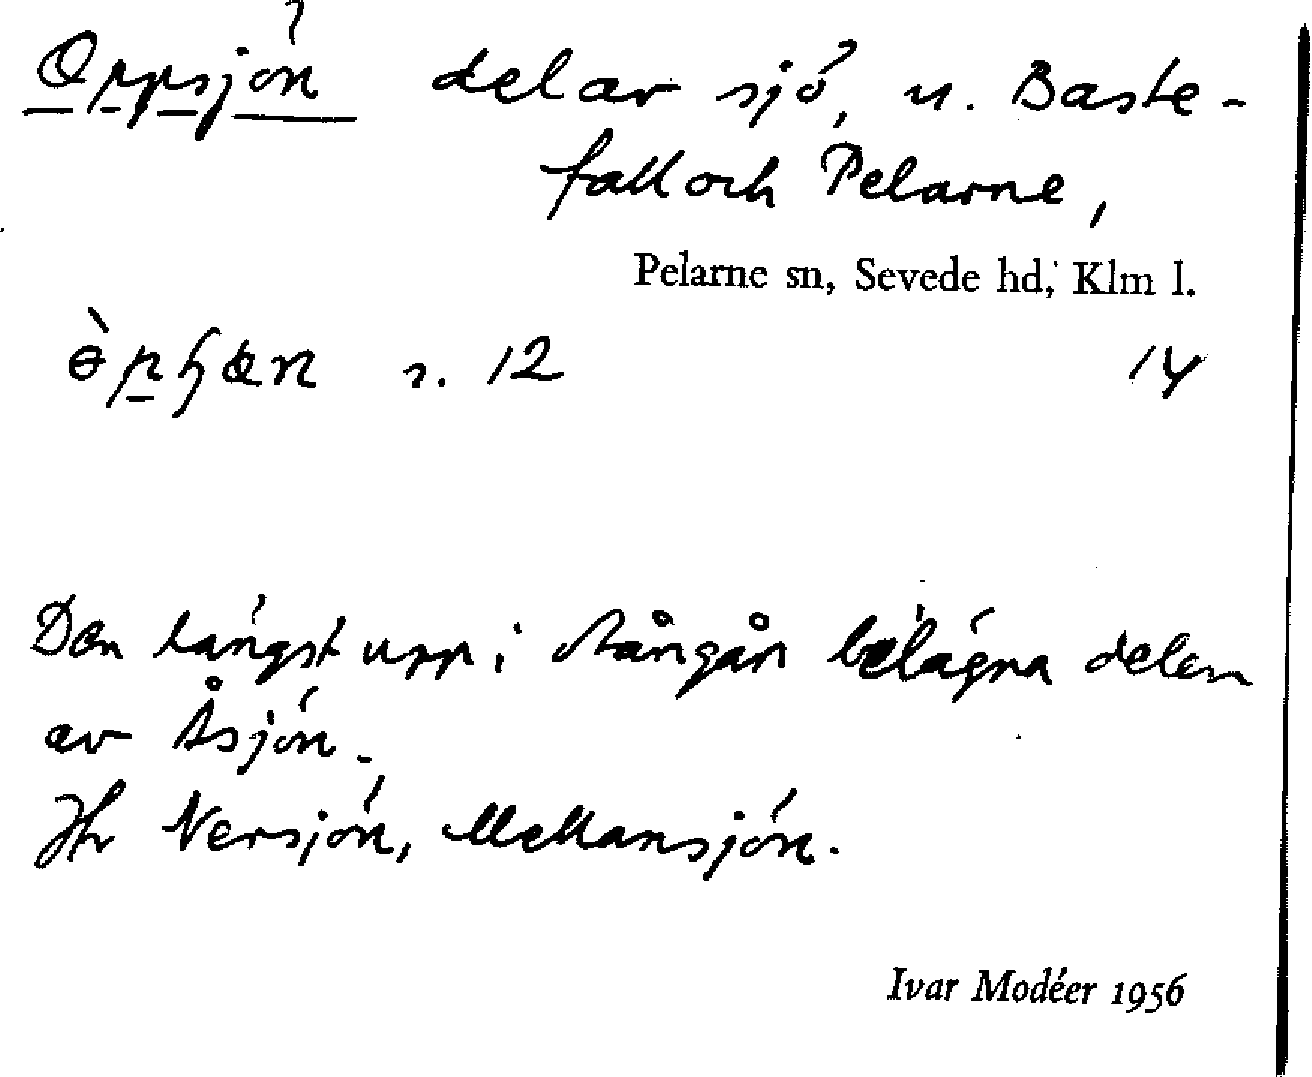 Oppsjön del av sjö, u. Baste-
fall och Pelarne,
Pelarne sn, Sevede hd, Klm l.
s. 12 14
Den längst upp i Stångån belägna delen
av Åsjön.
Jfr Nersjön, Mellansjön.
Ivar Modéer 1956